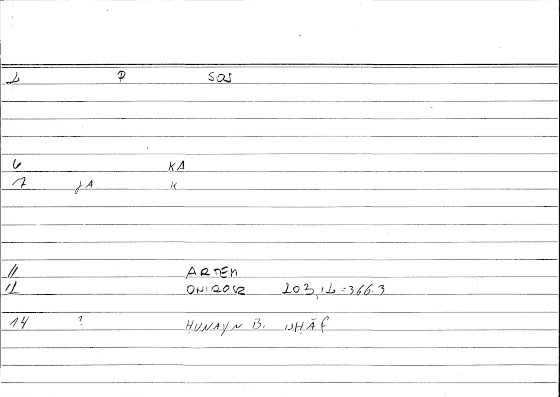 2 P SOS
6 KA
7 JA K
11 ARTEM
12 203,12 = 366.3
14 ? HUNAYN B. ISHĀQ